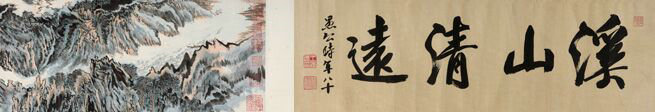 溪山清遠
愚公時年八十